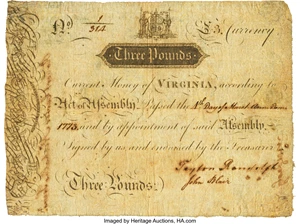 No. 1/394 £3. Currency
Three Pounds.
Current Money of VIRGINIA, according to
Act of Assembly, Passed the
1773, and by appointment of said Assembly,
Signed by us, and indorsed by the Treasurer.
Peyton Randolph
John Blair
Three Pounds.
Imaged by Heritage Auctions, HA.com